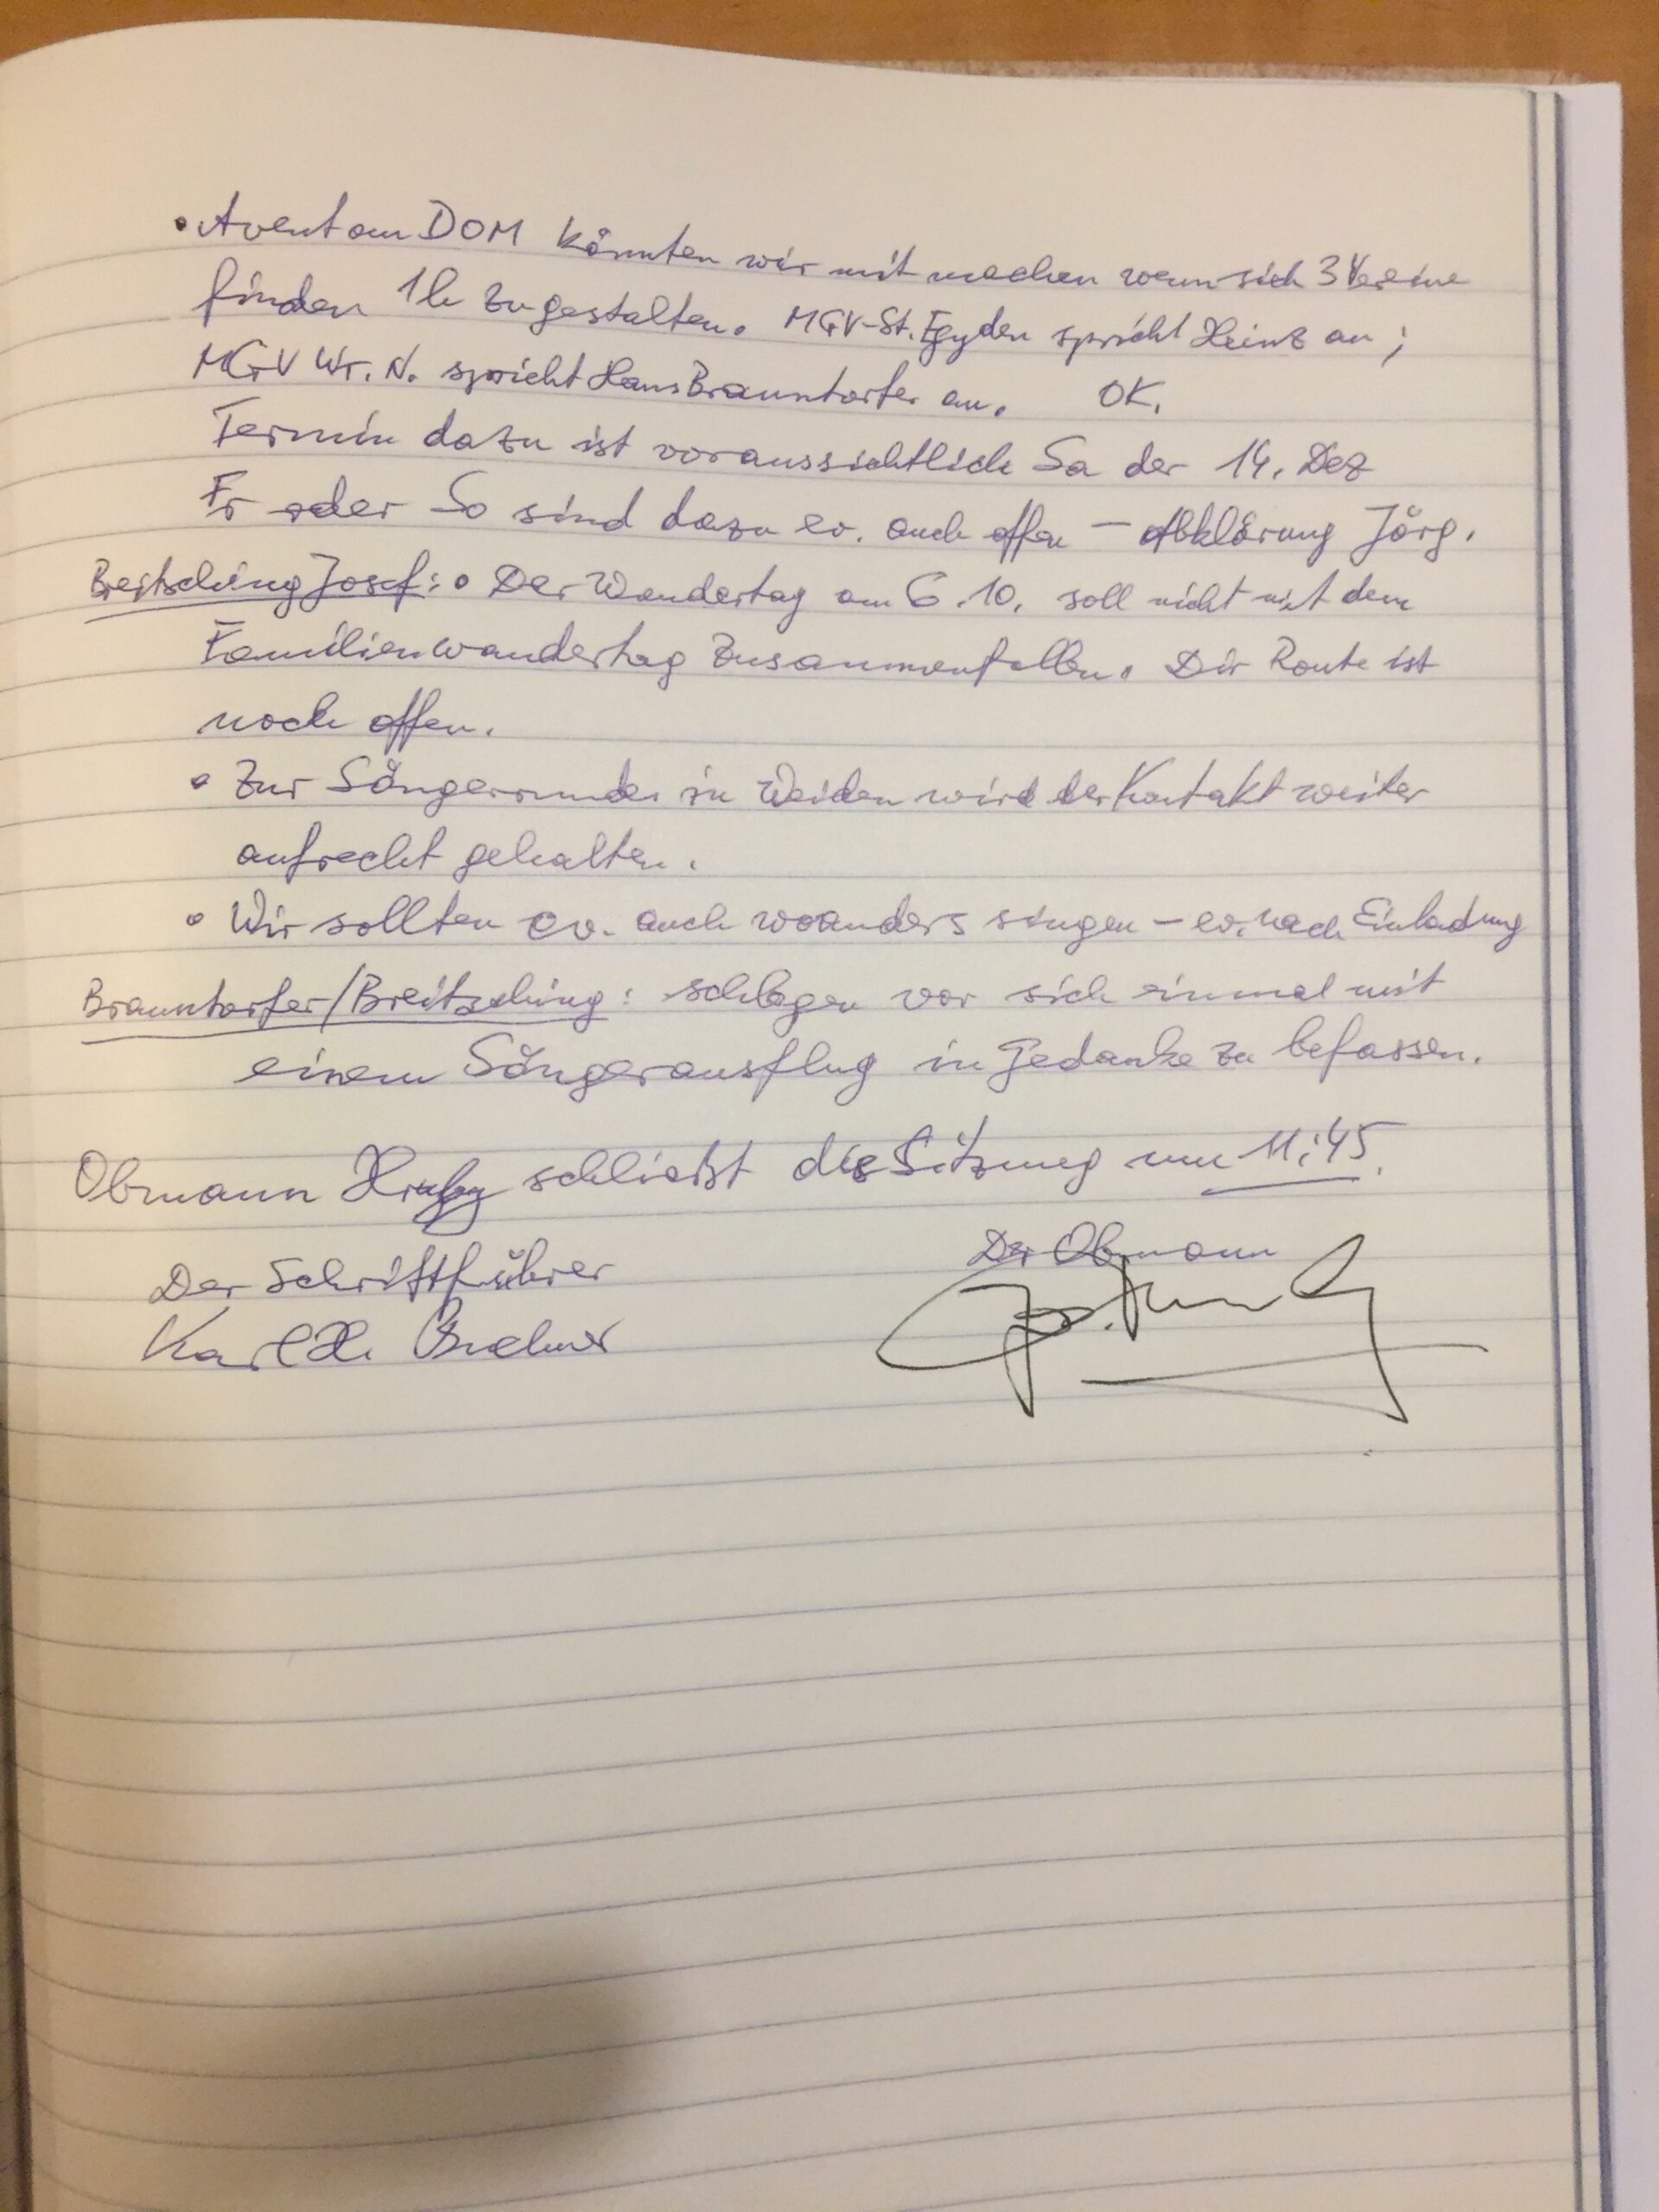 • Avent am DOM könnten wir mit machen wenn sich 3 Vereine
finden 1h zu gestalten. MGV-St. Egyden spricht Heinz an ;
MGV Wr. N. spricht Hans Braunstorfer an. OK.
Termin dazu ist voraussichtlich Sa der 14. Dez
Fr oder So sind dazu ev. auch offen – Abklärung Jörg.
Breitsching Josef: • Der Wandertag am 6.10. soll nicht mit dem
Familienwandertag zusammenfallen. Die Route ist
noch offen.
• Zur Sängerrunde in Weiden wird der Kontakt weiter
aufrecht gehalten.
• Wir sollten ev. auch woanders singen – ev. nach Einladung
Braunstorfer/Breitsching: schlagen vor sich einmal mit
einem Sängerausflug in Gedanke zu befassen.
Obmann Hruby schließt die Sitzung um 11:45.
Der Schriftführer Der Obmann
Karl H.